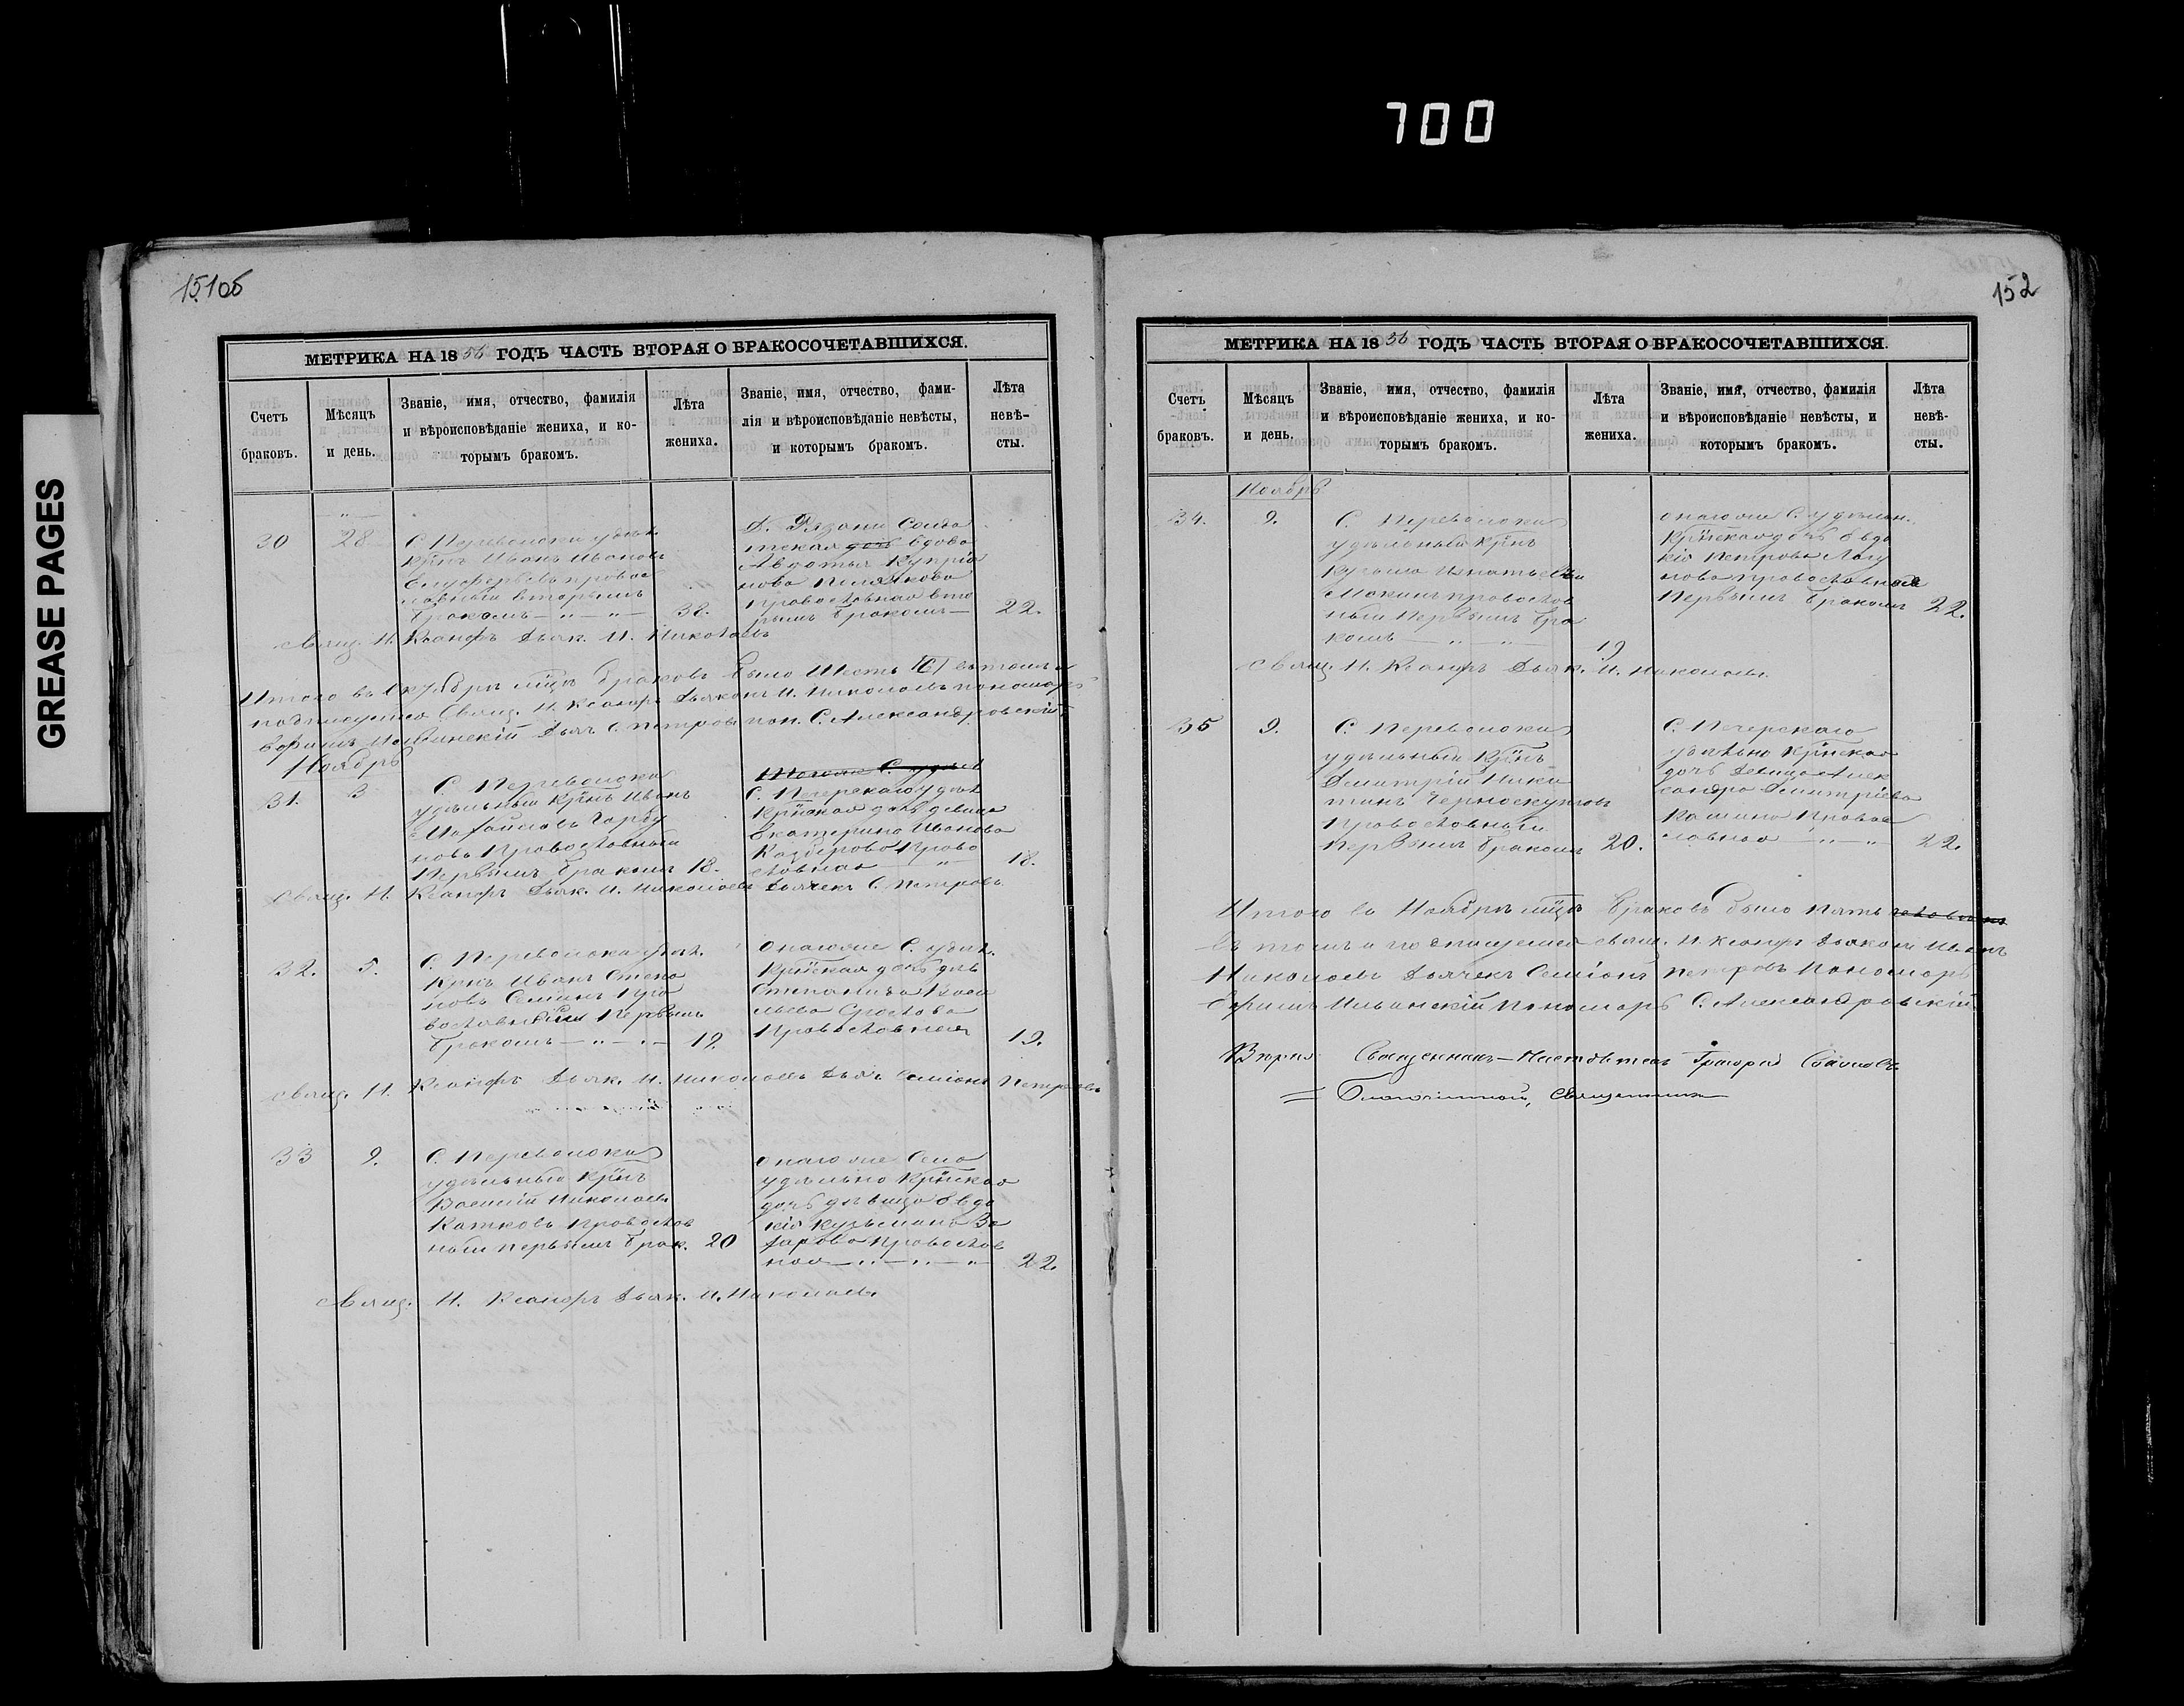 GREASE PAGES
700
151об
МЕТРИКА НА 1856 ГОДЪ ЧАСТЬ ВТОРАЯ О БРАКОСОЧЕТАВШИХСЯ.
Счетъ браковъ.
Мѣсяцъ и день.
Званіе, имя, отчество, фамилія
и вѣроисповѣданіе жениха, и ко-
торымъ бракомъ.
Лѣта жениха.
Званіе, имя, отчество, фами-
лія и вѣроисповѣданіе невѣсты,
и которымъ бракомъ.
Лѣта невѣ-
сты.
30
28
С. Переволоки удѣл.
Крнъ Иванъ Ивановъ
Елуферьевъ правос
лавный вторымъ
бракомъ — „ — „ —
38.
Д. Рязани Солда
тская дочь вдова
Авдотья Купріа
нова
Православная вто
рымъ бракомъ —
22.
Свящ. Н. Ксанфъ Дьяк. И. Николаевъ
Итого въ Октябрѣ мцѣ браковъ было шесть [6] въ томъ и
подписуемся Свящ. Н. Ксанфъ Дьяконъ И. Николаевъ пономарь
Дьяч. С. Петровъ пон. С. Александровскій
Ноябрь
31.
3
С. Переволоки
удѣльный Крнъ Иванъ
новъ Православный
Первымъ бракомъ
18.
С. Печерскаго удѣл
Крнская дочь девица
Екатерина Иванова
Право
славная — „
18.
Свящ. Н. Ксанфъ Дьяк. И. Николаевъ Дьячекъ С. Петровъ
32.
5.
С. Переволоки удѣл.
Крнъ Иванъ Степа
новъ Семинъ Пра
вославный Первымъ
бракомъ — „ — „ —
19.
Онаго же С. удѣл.
Крнская дочь дѣв
Степанида Васи
льева
Православная
19.
Свящ. Н. Ксанфъ Дьяк. И. Николаевъ Дьяч. Семіонъ Петровъ
33
9.
С. Переволоки
удѣльный Крнъ
Василій Николаевъ
Катковъ Православ
ный первымъ брак.
20
Онаго же Села
удѣльно Крнская
дочь дѣвица Евдо
кія Кузьмина За
харова Православ
ная — „ — „ — „
22.
Свящ. Н. Ксанфъ Дьяк. И. Николаевъ
152
МЕТРИКА НА 1856 ГОДЪ ЧАСТЬ ВТОРАЯ О БРАКОСОЧЕТАВШИХСЯ.
Счетъ браковъ.
Мѣсяцъ и день.
Званіе, имя, отчество, фамилія
и вѣроисповѣданіе жениха, и ко-
торымъ бракомъ.
Лѣта жениха.
Званіе, имя, отчество, фамилія
и вѣроисповѣданіе невѣсты, и
которымъ бракомъ.
Лѣта невѣ-
сты.
Ноябрь
34.
9.
С. Переволоки
удѣльный Крнъ
Кузьма Игнатьевъ
Мокинъ православ
ный Первымъ бра
комъ — „ — „
19
Онаго же С. удѣльн.
Крнская дочь Евдо
кія Петрова Лагу
нова православная
Первымъ бракомъ
22.
Свящ. Н. Ксанфъ Дьяк. И. Николаевъ.
35
9.
С. Переволоки
удѣльный Крнъ
Дмитрій Ники
тинъ Черноскутовъ
Православный
Первымъ бракомъ
20.
С. Печерскаго
удѣльно Крнская
дочь девица Алек
сандра Дмитріева
Правос
лавная — „ — „
22.
Итого въ Ноябрѣ мцѣ браковъ было пять
въ томъ и подпишемся свящ. Н. Ксанфъ Дьяконъ Иванъ
Николаевъ Дьячекъ Семіонъ Петровъ Пономарь
Пономарь С. Александровскій
Вѣрно: Священникъ-Настоятель Григорій
Благочинной, Священникъ